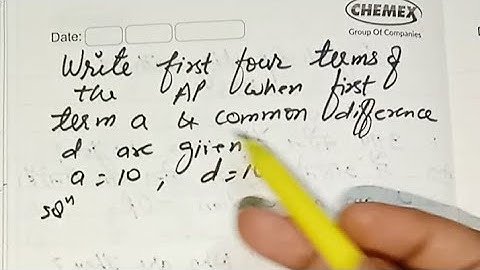 CHEMEX
Group Of Companies
Date:
Write first four terms of
the AP when first
term a & common difference
d are given
a = 10 , d = 1
solⁿ